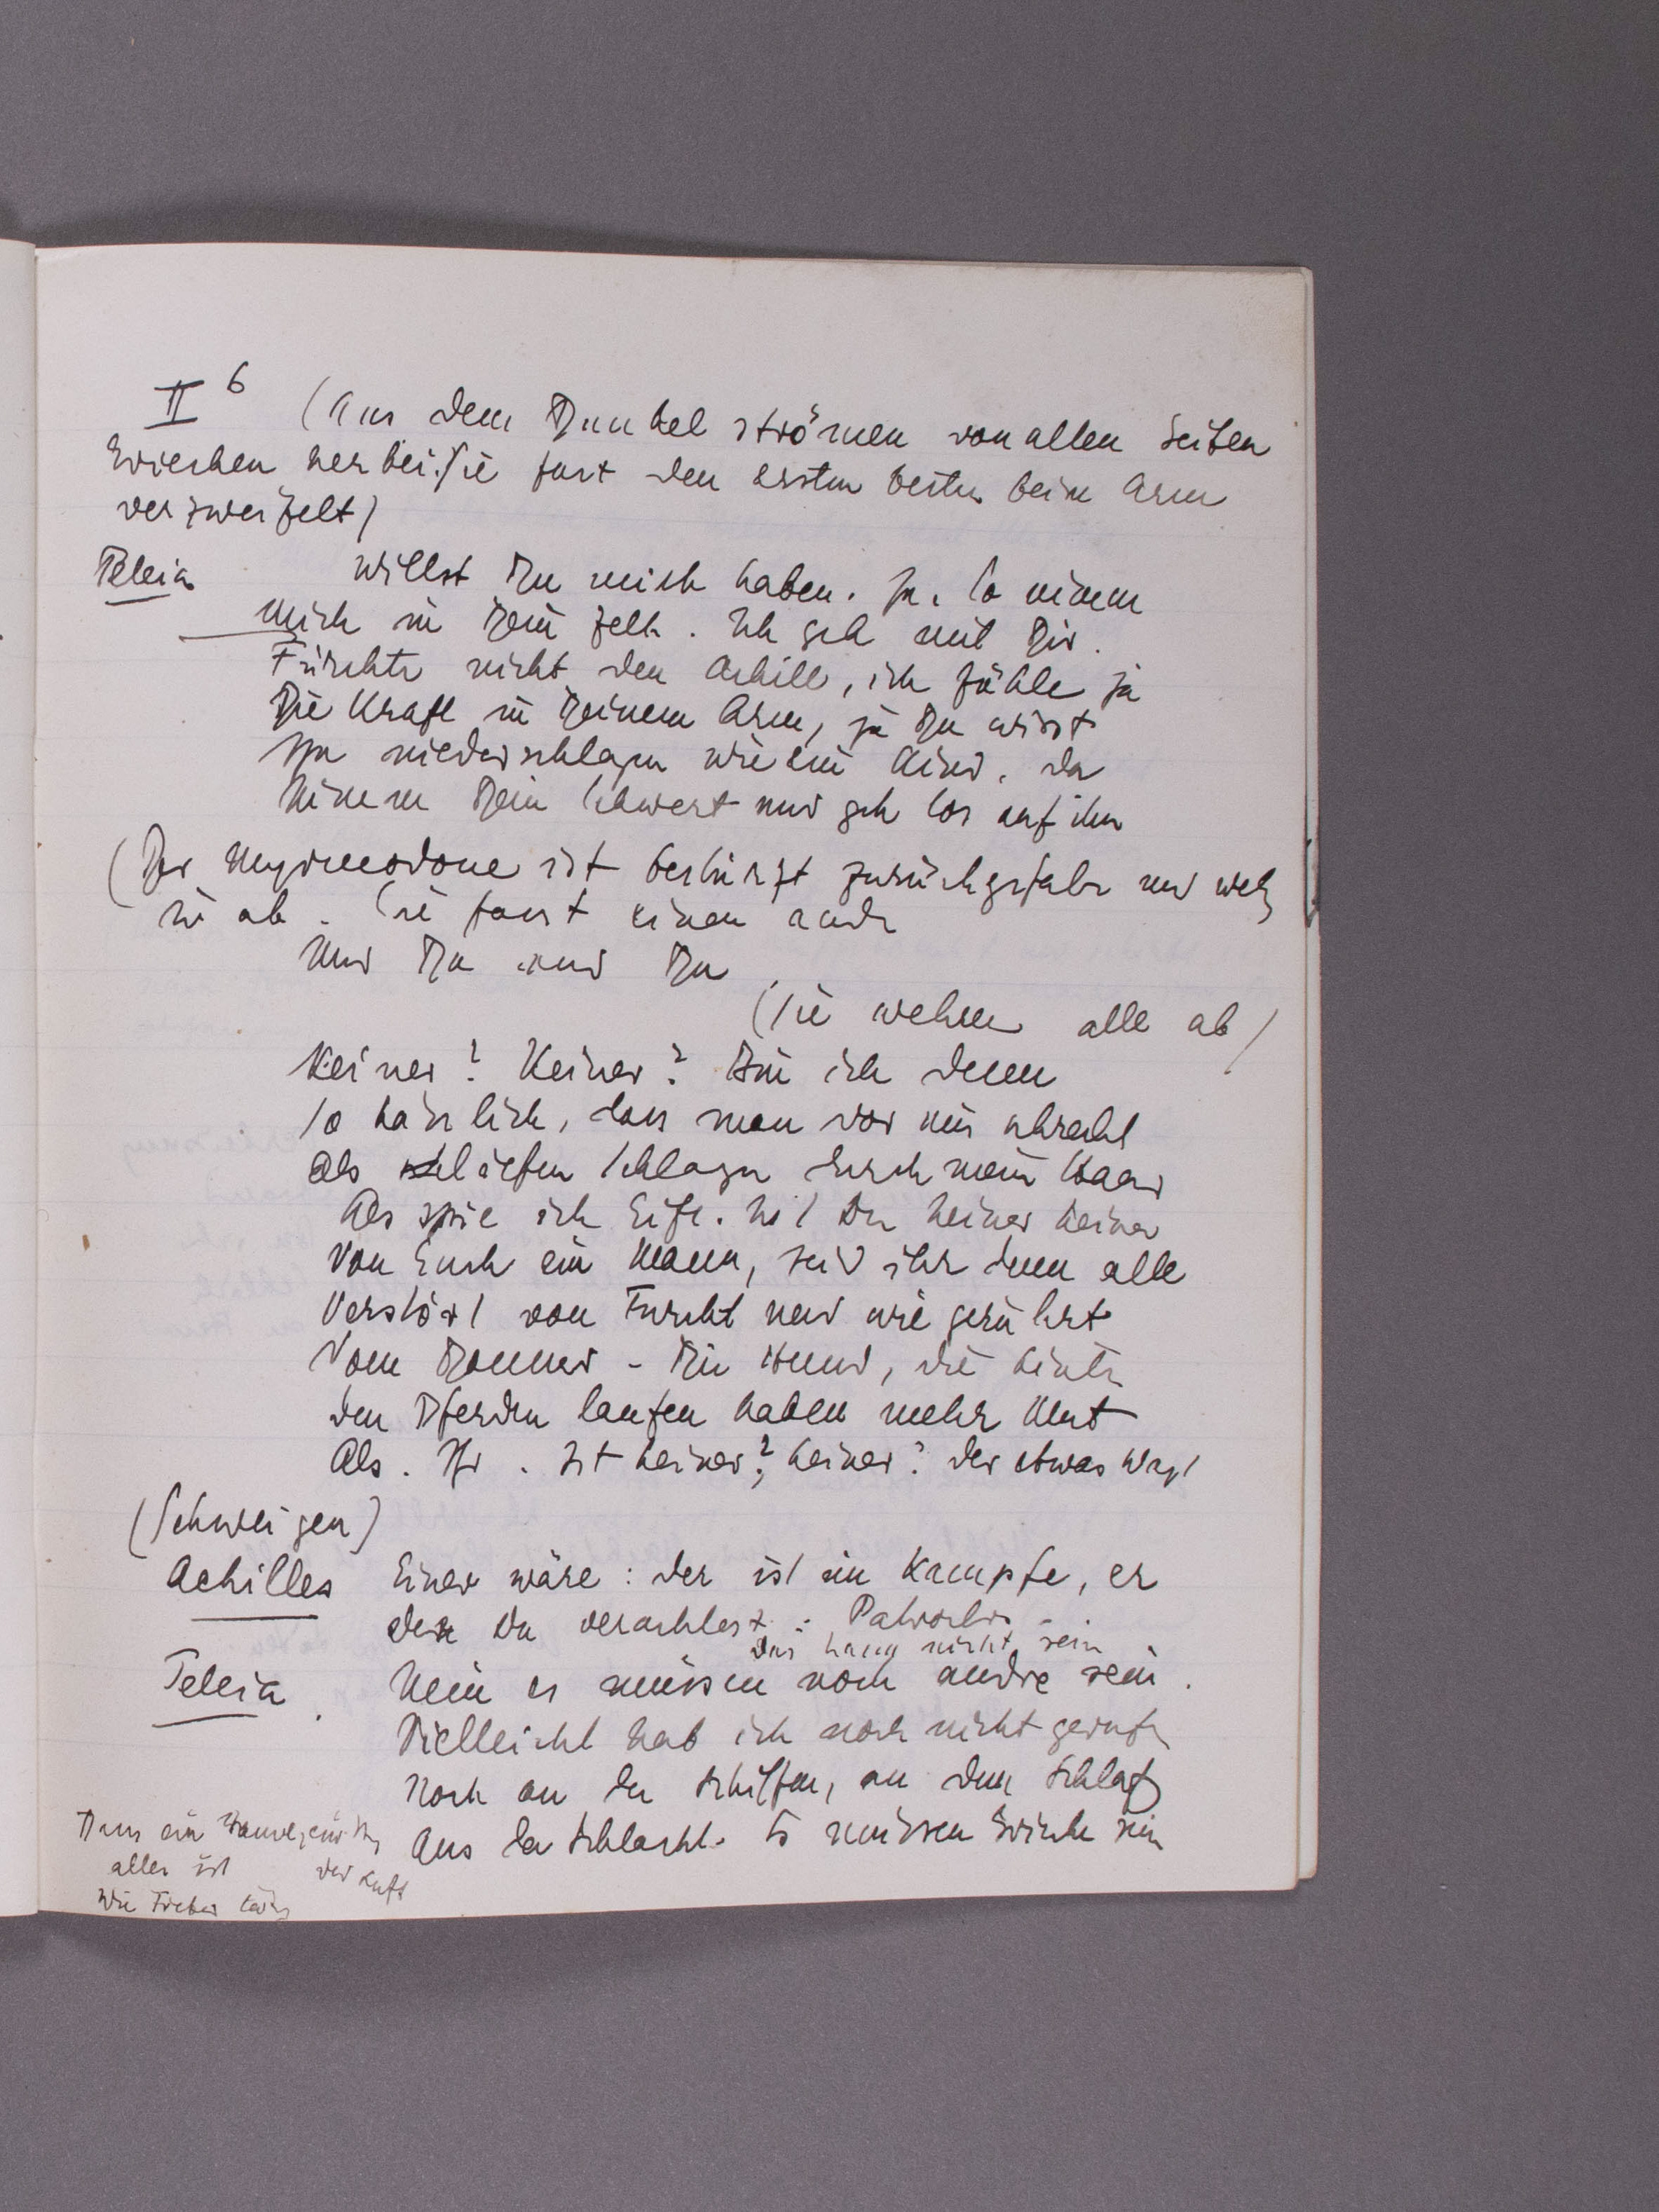 II 6 (Aus dem Dunkel strömen von allen Seiten
Griechen herbei. Sie fasst den ersten besten beim Arm
verzweifelt)
Teleia Willst Du mich haben. Ja. So nimm
mich in Dein Zelt. Ich geh mit Dir.
Fürchte nicht den Achill, ich fühle ja
Die Kraft in Deinem Arm, ja Du wirst
Ihn niederschlagen wie ein Kind. da
Nimm Dein Schwert und geh los auf ihn
(Der Myrmedone ist bestürzt zurückgefahr und weh
sie ab. Sie fasst einen andr
Und Du und Du
(Sie wehren alle ab)
Keiner? Keiner? Bin ich denn
so hässlich, dass man vor mir schrecht
als liefen Schlagen durch mein Haar
Als spie ich Gift. Ist Du keiner keiner
Von Euch ein Mann, seid ihr denn alle
Verstört von Furcht und wie gerührt
Vom Donner - Die Hund, die hintr
den Pferden laufen haben mehr Mut
Als. Ihr. Ist keiner? keiner? der etwas wagt
(Schweigen)
Achilles Einer wäre: der ist im Kampfe, er
den Du verachtest: Patroclus -
das kann nicht sein
Teleia. Nein es müssen noch andre sein.
Vielleicht hab ich noch nicht gerufn
Noch an den Schiffen, an dem Schlaf
Aus der Schlacht. Es müssen Grieche sein
Dass ein
aller ist der Luft
Wie Fieber